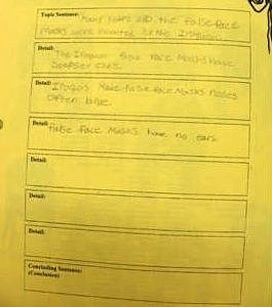 Topic Sentence: Many years ago the False face
Masks were invented by the Iroquois.
Detail:
The Iroquois false face Masks have
Detail:
Iroquois Made false face Masks noses
often large.
Detail:
False Face Masks have no ears
Detail:
Detail:
Detail:
Concluding Sentence:
(Conclusion)